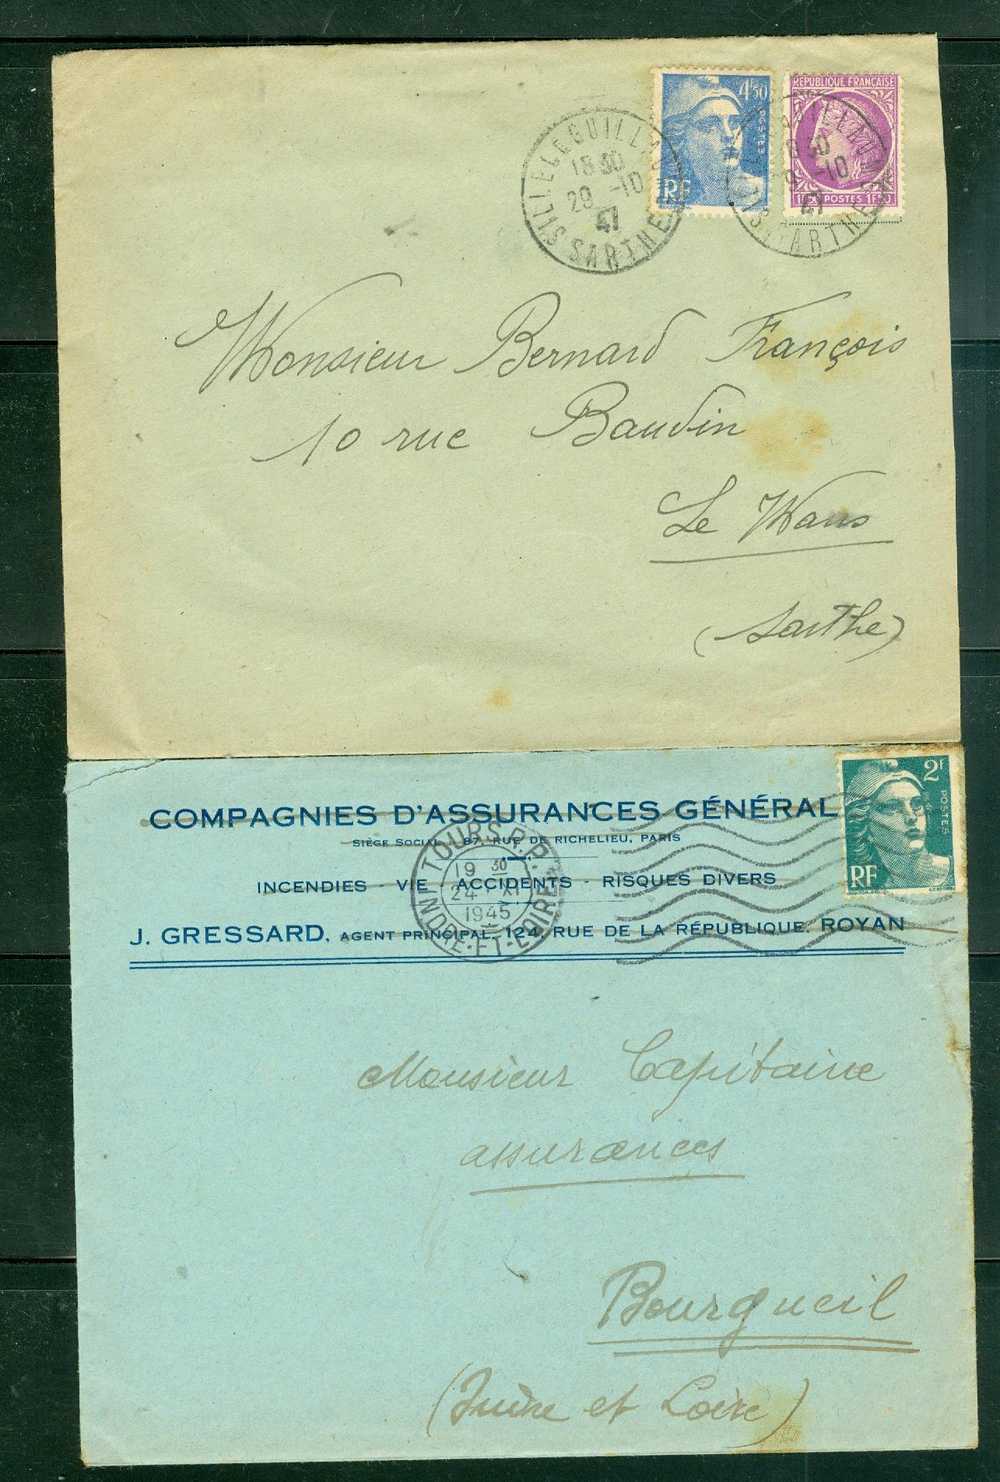 4f50
POSTES
RF
RÉPUBLIQUE FRANÇAISE
POSTES 1F50
SILLE LE GUILLAUME
18 30
29 -10
47
SARTHE
Monsieur Bernard François
10 rue Baudin
Le Mans
(Sarthe)
2f
POSTES
RF
COMPAGNIES D'ASSURANCES GÉNÉRAL
SIÈGE SOCIAL, 87, RUE DE RICHELIEU, PARIS
INCENDIES - VIE - ACCIDENTS - RISQUES DIVERS
J. GRESSARD, AGENT PRINCIPAL, 124, RUE DE LA RÉPUBLIQUE, ROYAN
TOURS R.P.
19 30
24 XI
1945
INDRE-ET-LOIRE
Monsieur Capitaine
assurances
Bourgueil
(Indre et Loire)